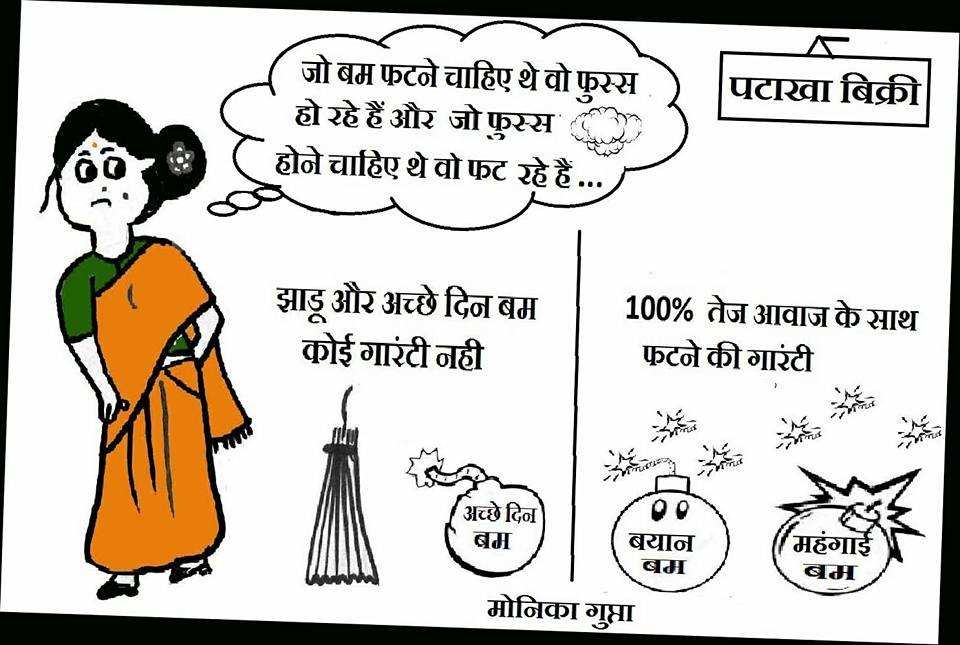 जो बम फटने चाहिए थे वो फुस्स
हो रहे हैं और जो फुस्स
होने चाहिए थे वो फट रहे हैं ...
पटाखा बिक्री
झाडू और अच्छे दिन बम
कोई गारंटी नही
100% तेज आवाज के साथ
फटने की गारंटी
अच्छे दिन
बम
बयान
बम
महंगाई
बम
मोनिका गुप्ता